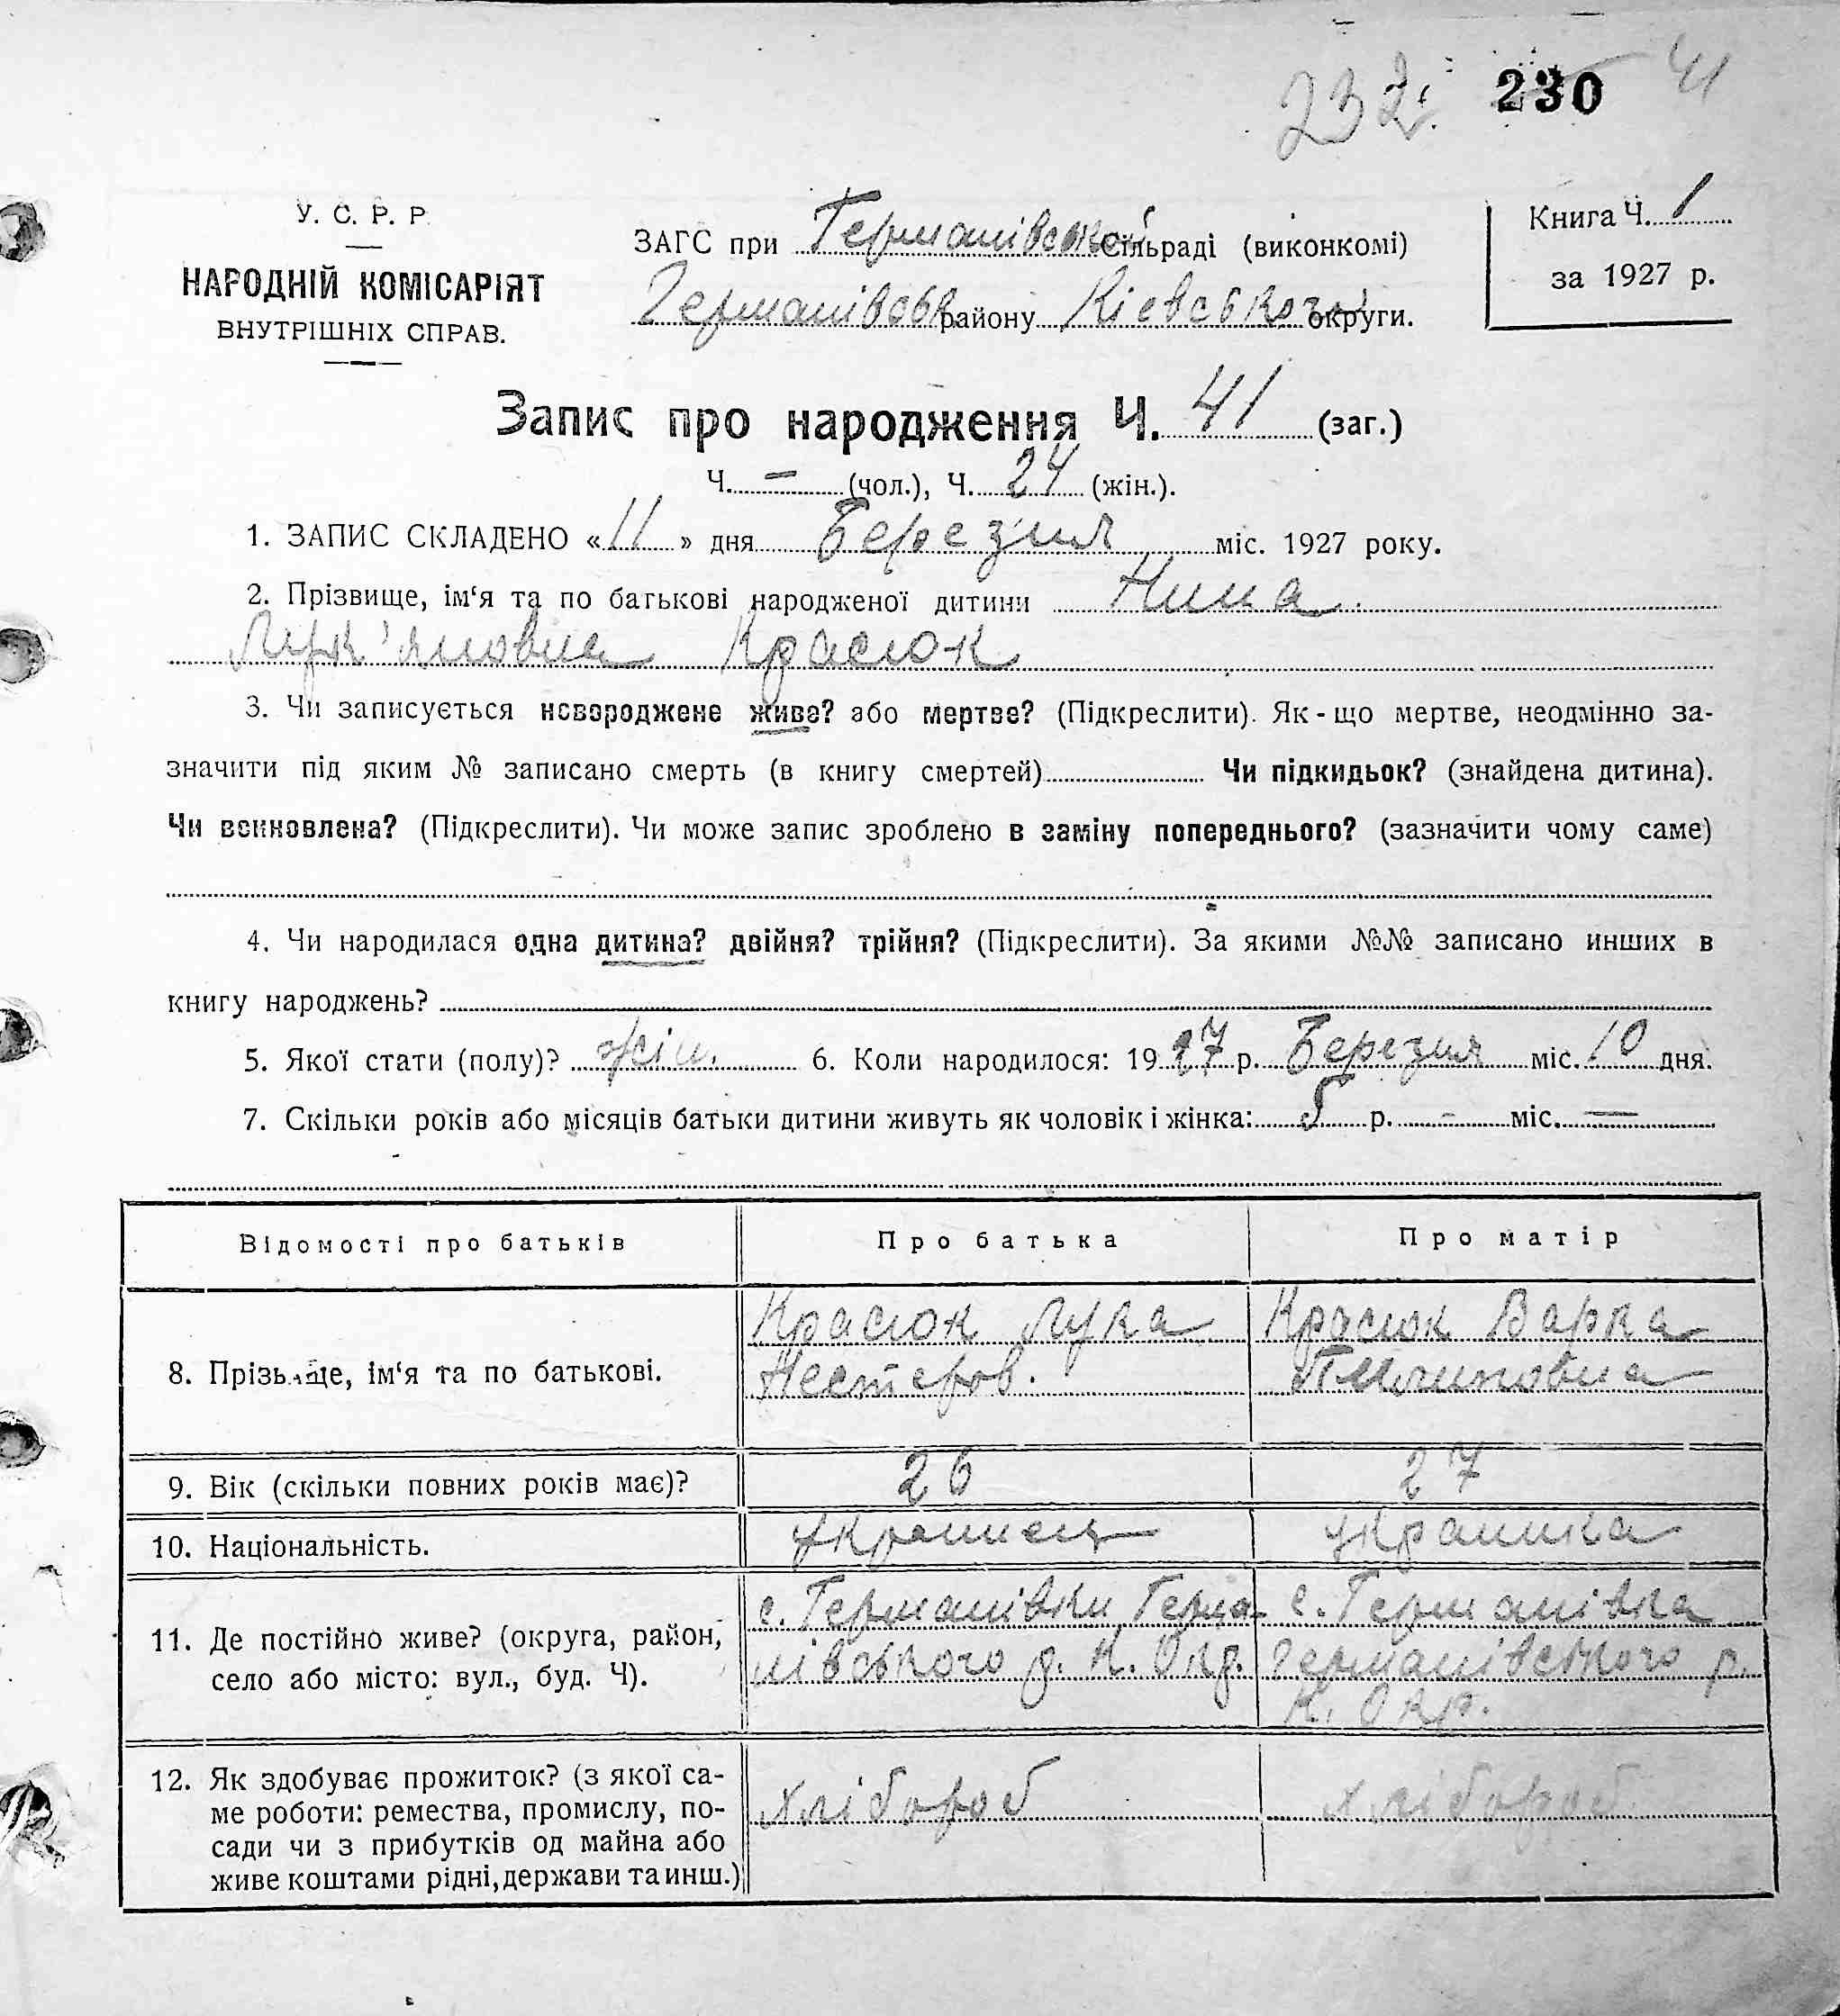 232. 230 41
У. С. Р. Р.
НАРОДНІЙ КОМІСАРІЯТ
ВНУТРІШНІХ СПРАВ.
ЗАГС при Германівській сільраді (виконкомі)
Германівськ району Кієвського округи.
Книга Ч. 1
за 1927 р.
Запис про народження Ч. 41 (заг.)
Ч. — (чол.), Ч. 24 (жін.).
1. ЗАПИС СКЛАДЕНО «11» дня Березня міс. 1927 року.
2. Прізвище, ім‘я та по батькові народженої дитини Нина
Лук'яновна Красюк
3. Чи записується новороджене живе? або мертве? (Підкреслити). Як-що мертве, неодмінно за-
значити під яким № записано смерть (в книгу смертей) Чи підкидьок? (знайдена дитина).
Чи всиновлена? (Підкреслити). Чи може запис зроблено в заміну попереднього? (зазначити чому саме)
4. Чи народилася одна дитина? двійня? трійня? (Підкреслити). За якими №№ записано инших в
книгу народжень?
5. Якої стати (полу)? жін. 6. Коли народилося: 1927 р. Березня міс. 10 дня.
7. Скільки років або місяців батьки дитини живуть як чоловік і жінка: 5 р. - міс. —
Відомості про батьків Про батька Про матір
8. Прізвище, ім‘я та по батькові.
Красюк Лука
Нестеров.
Красюк Варка
9. Вік (скільки повних років має)? 26 27
10. Національність. Украинец Украинка
11. Де постійно живе? (округа, район,
село або місто: вул., буд. Ч).
с. Германівки Герма-
нівського р. К. Окр.
с. Германівка
Германівського р.
К. Окр.
12. Як здобуває прожиток? (з якої са-
ме роботи: ремества, промислу, по-
сади чи з прибутків од майна або
живе коштами рідні, держави та инш.)
хлібороб
хлібороб